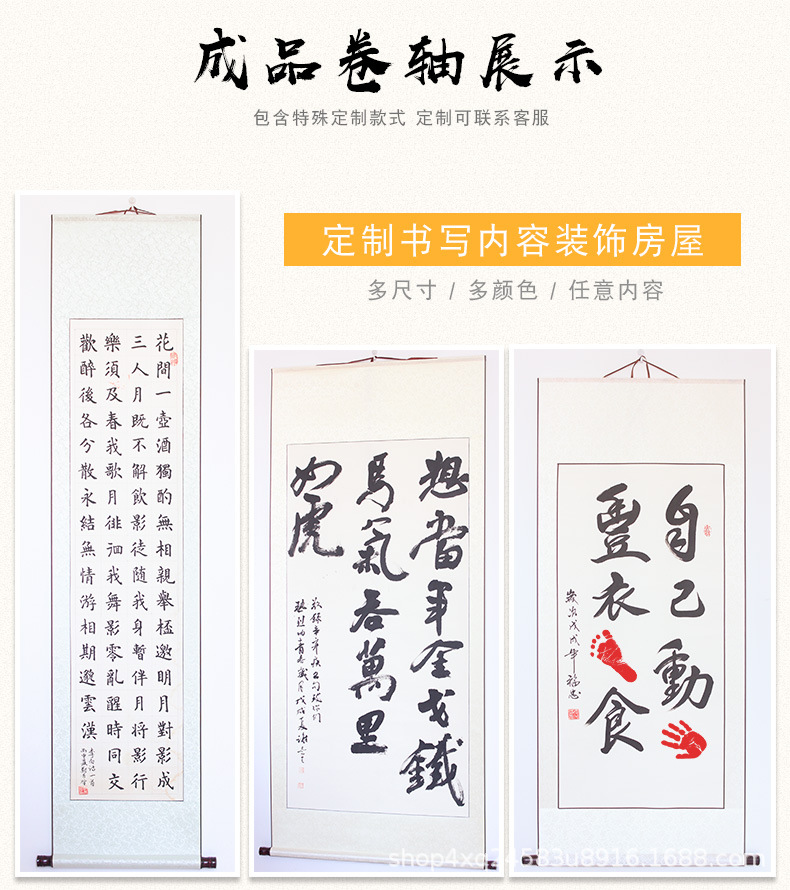 成品卷轴展示
包含特殊定制款式 定制可联系客服
定制书写内容装饰房屋
多尺寸 / 多颜色 / 任意内容
花間一壺酒獨酌無相親舉桮邀明月對影成
三人月既不解飲影徒隨我身暫伴月將影行
樂須及春我歌月徘徊我舞影零亂醒時同交
歡醉後各分散永結無情游相期邈雲漢
想當年金戈鐵
馬氣吞萬里
如虎
自己動
豐衣食
歲次戊戌年福忠
shop4xq24583u8916.1688.com